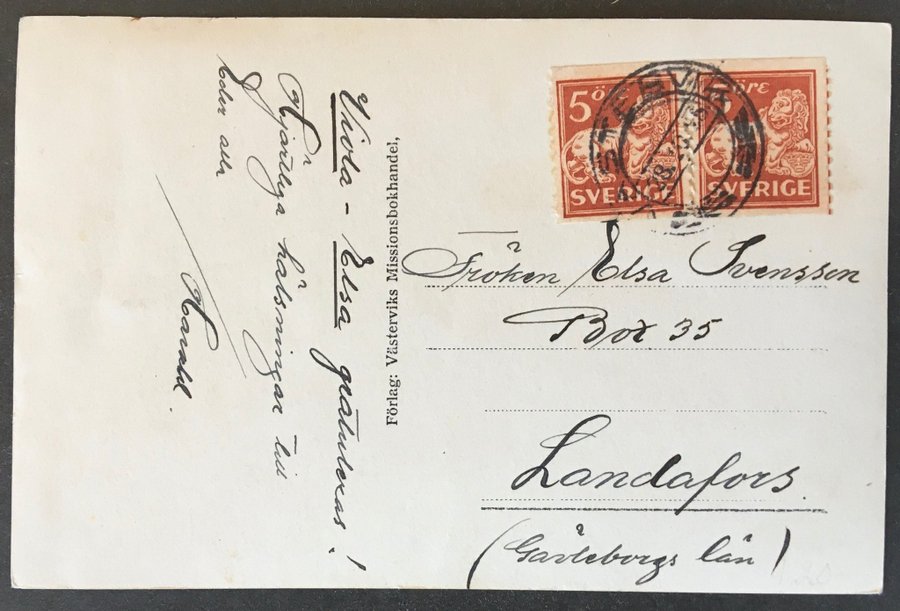 Viola - Elsa gratuleras!
Hjärtliga hälsningar till
Eder alla
Harald.
Förlag: Västerviks Missionsbokhandel,
5 ÖRE
SVERIGE
SVERIGE
Fröken Elsa Svensson
Box 35
Landafors
(Gävleborgs län)